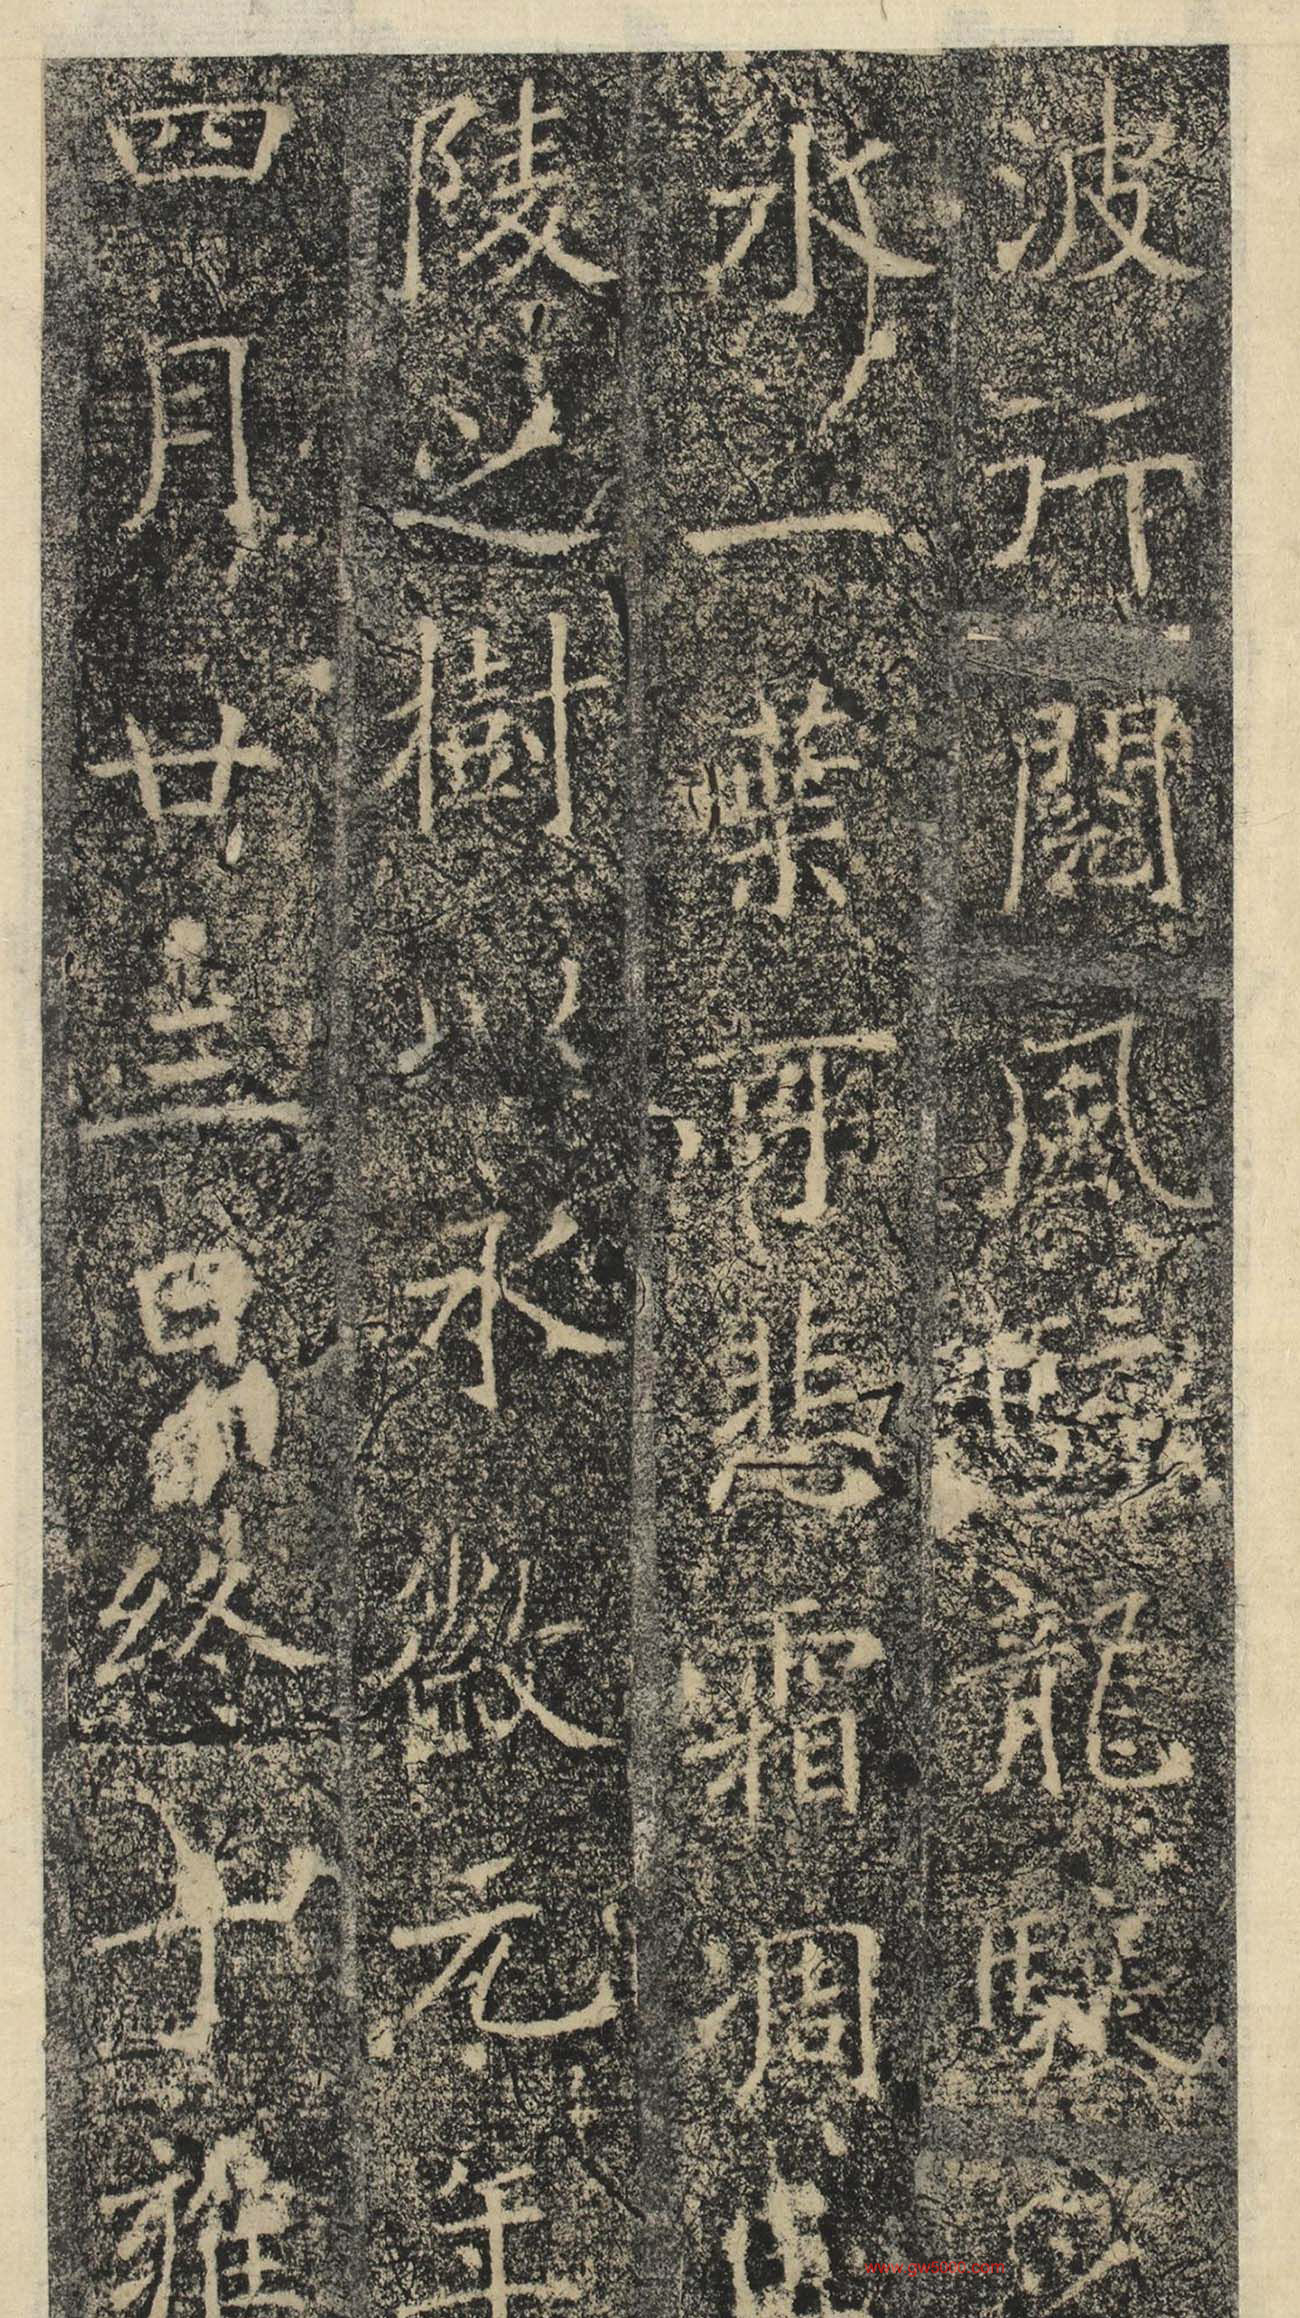 波行閱風龍驟
水一葉可悲霜凋
陵之樹以永徽元年
四月廿三日終于雍
www.gw8000.com